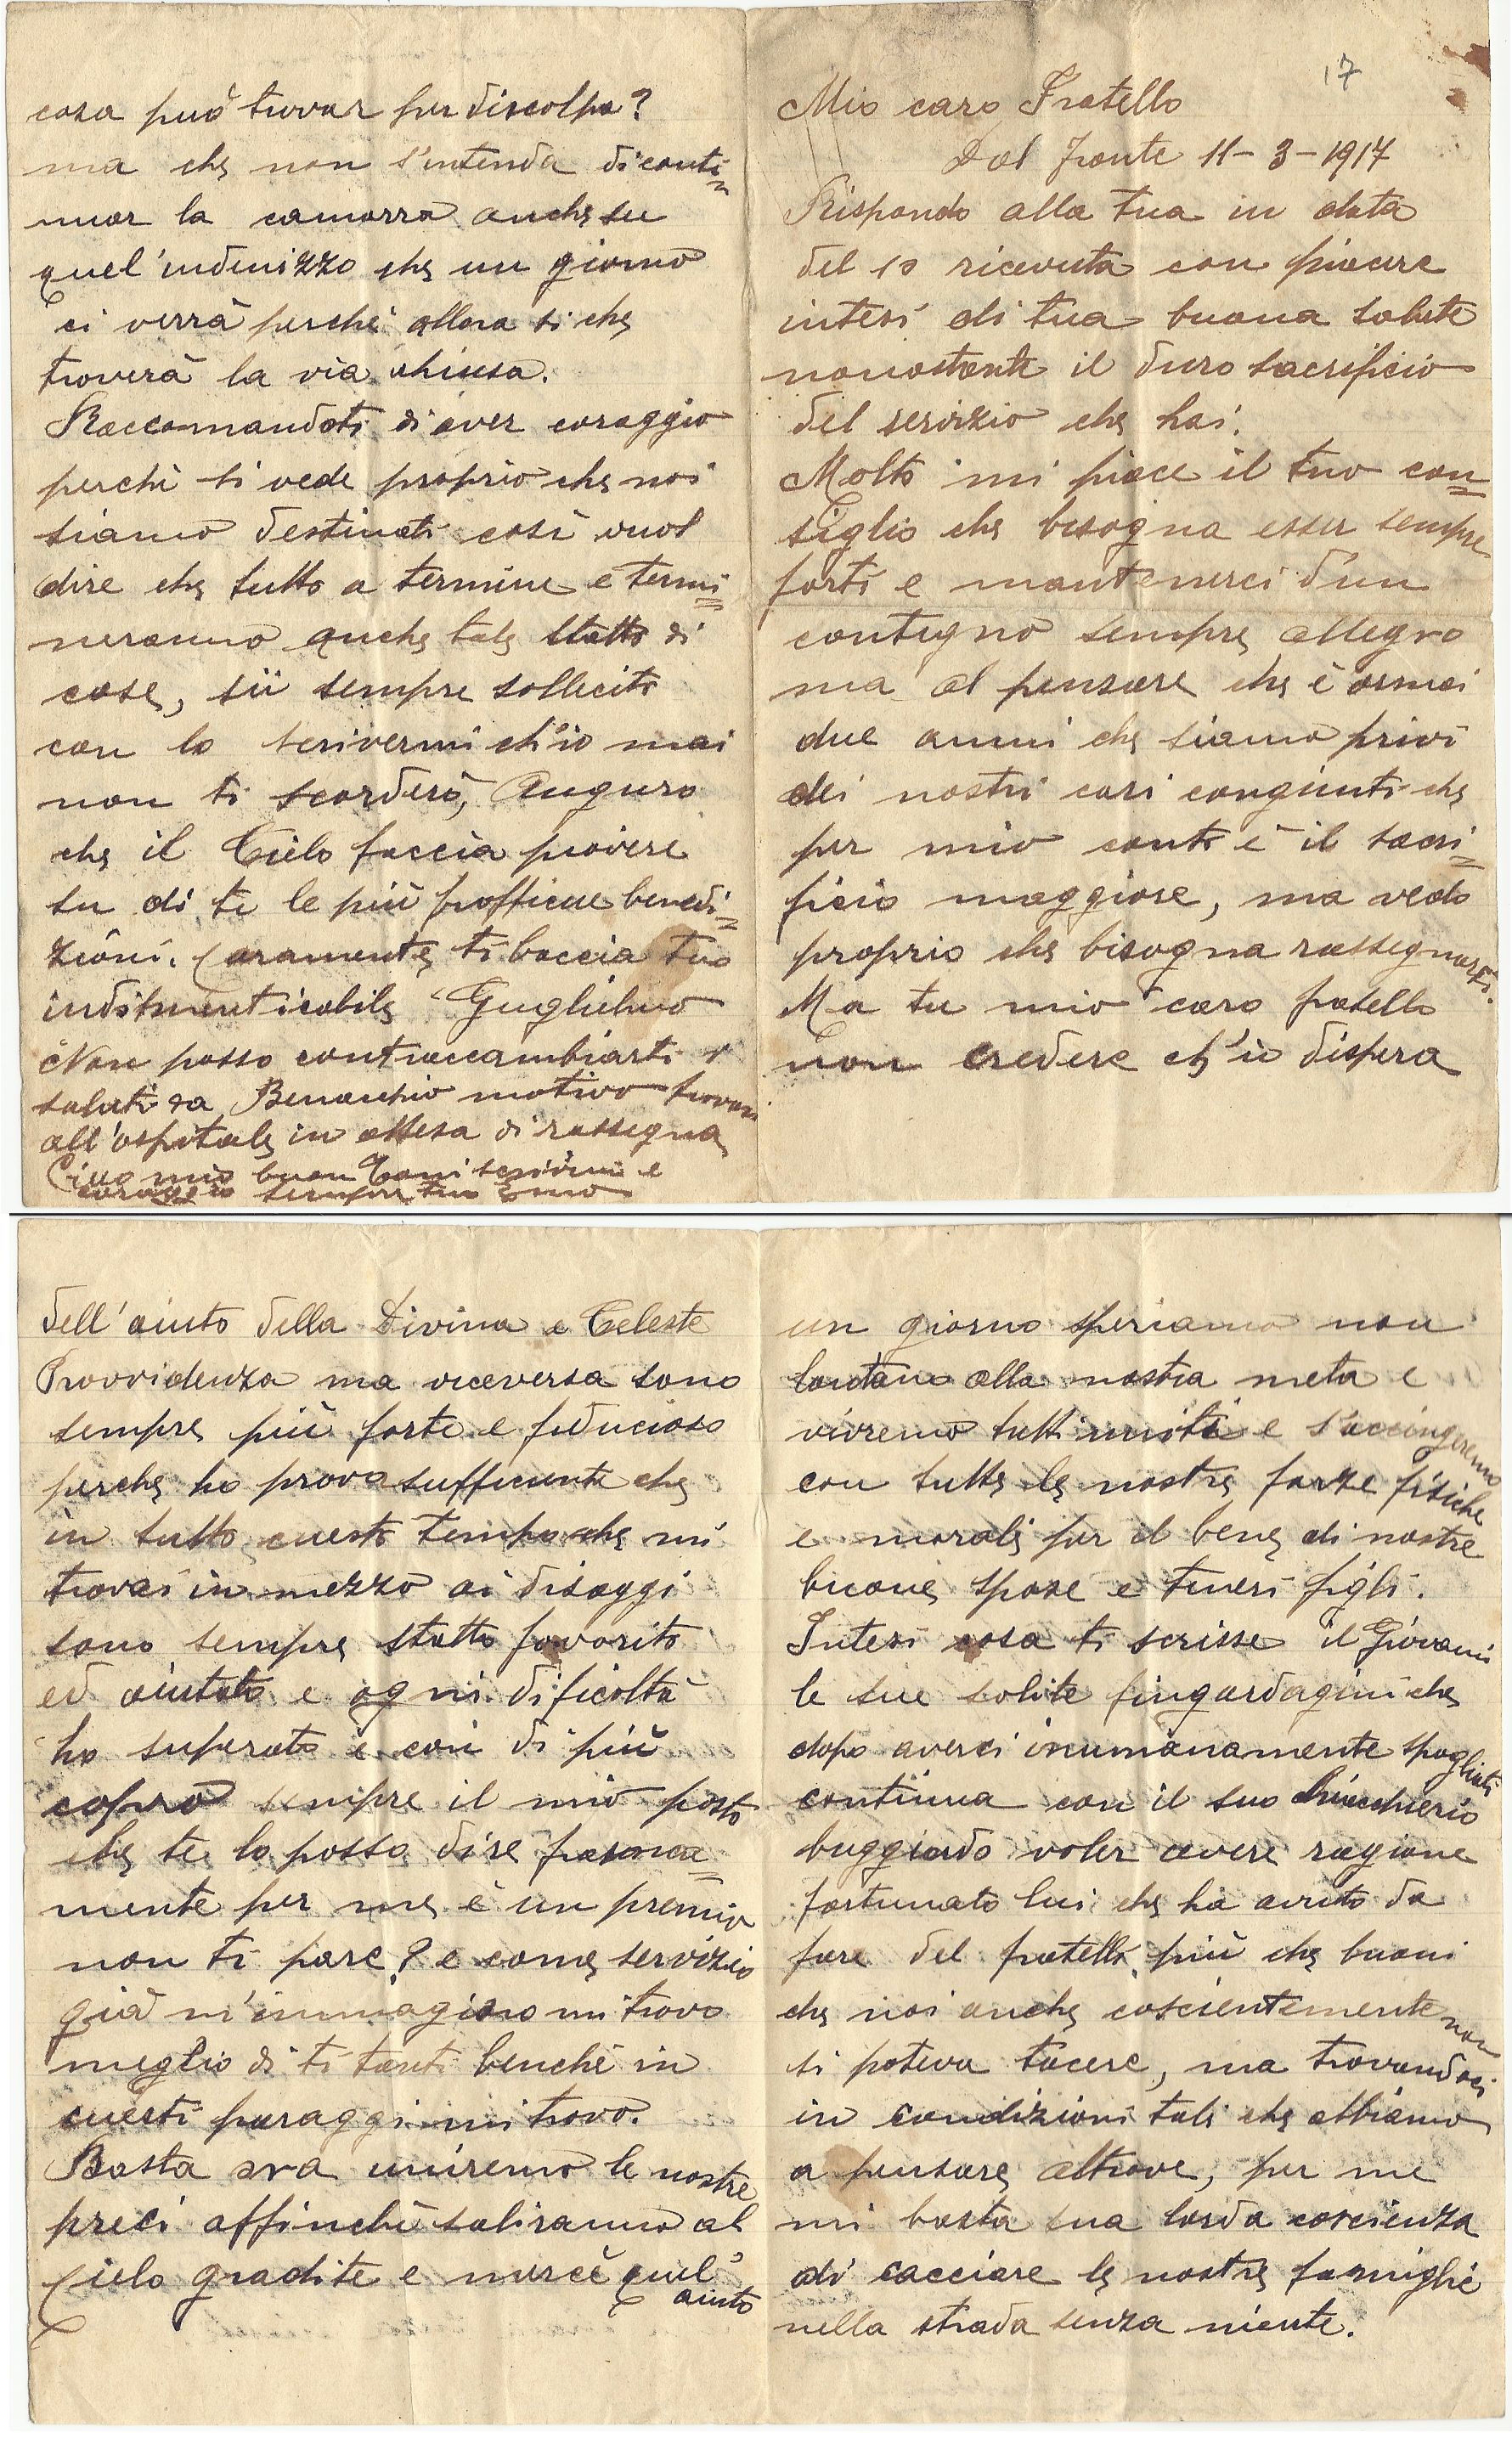 17
Mio caro Fratello
Dal fronte 11-3-1917
Rispondo alla tua in data
del 10 ricevuta con piacere
intesi di tua buona salute
nonostante il duro sacrificio
del servizio che hai.
Molto mi piace il tuo con=
siglio che bisogna esser sempre
forti e mantenerci d'un
contegno sempre allegro
ma al pensare che è ormai
due anni che siamo privi
dei nostri cari congiunti che
per mio conto è il sacri=
ficio maggiore, ma vedo
proprio che bisogna rassegnarsi.
Ma tu mio caro fratello
non credere ch'io dispera
dell'aiuto della Divina e Celeste
Provvidenza ma viceversa sono
sempre più forte e fiducioso
perche ho prova sufficiente che
in tutto cuesto tempo che mi
trovai in mezzo ai disaggi
sono sempre statto favorito
ed aiutato e ogni dificoltà
ho superato e con di più
copro sempre il mio posto
che te lo posso dire
mente per me è un premio
non ti pare? e come servizio
già m'immagino mi trovo
meglio di ti tanti benchè in
cuesti paraggi mi trovo.
Basta ora uniremo le nostre
preci affinchè saliranno al
Cielo gradite e mercè quel'
aiuto
un giorno speriamo non
lontano alla nostra meta e
vivremo tutti uniti e s'accingeremo
con tutte le nostre forze fisiche
e morali per il bene di nostre
buone spose e teneri figli.
Intesi cosa ti scrisse il Giovani
le sue solite fingardagini che
dopo averci inumanamente spogliati
continua con il suo
buggiardo voler avere ragione
fortunato lui che ha avuto da
fare del fratelli più che buoni
che noi anche coscientemente non
si poteva tacere, ma trovandoci
in condizioni tali che abbiamo
a pensare altrove, per me
mi basta sua lorda coscienza
di cacciare le nostre famiglie
nella strada senza niente.
cosa può trovar per discolpa?
ma che non s'intenda di conti=
nuar la camorra anche su
quel'indenizzo che un giorno
ci verrà perchè allora si che
troverà la via chiusa.
Raccomandoti di aver coraggio
perchè si vede proprio che noi
siamo destinati così vuol
dire che tutto a termine e termi=
neranno anche tale statto di
cose, sii sempre sollecito
con lo scrivermi ch'io mai
non ti scorderò, Auguro
che il Cielo faccia piovere
su di te le più profficue benedi=
zioni. Caramente ti baccia tuo
indimenticabile Guglielmo
Non posso contraccambiarti i
saluti da Benacchio motivo trovasi
all'ospitale in attesa di rassegna
Ciao mio buon Toni scrivimi e
coraggio sempre tuo Emo